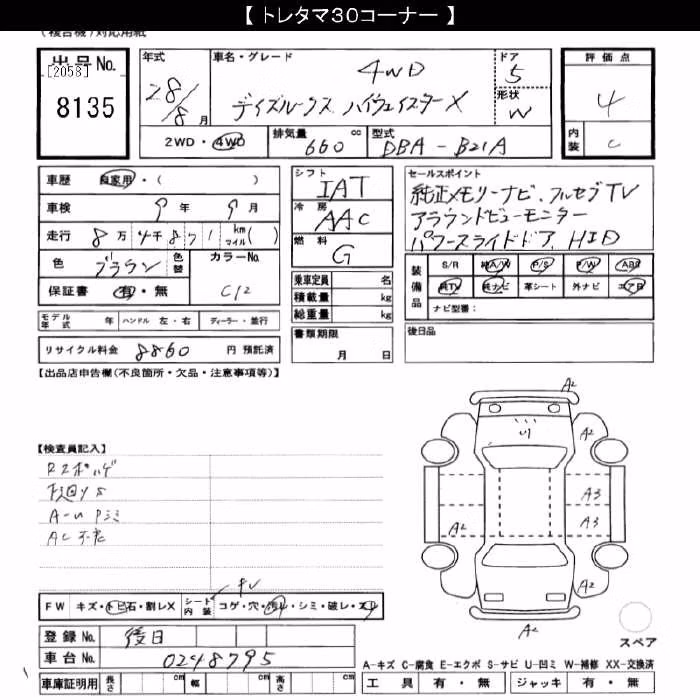 【 トレタマ30コーナー 】
(複合機)対応用紙
出品No. [2058] 8135
年式 28/8月
車名・グレード 4WD デイズルークス ハイウェイスターX
ドア 5
形状 W
2WD・4WD 排気量 660 cc 型式 DBA-B21A
評価点 4
内装 C
車歴 自家用・( )
車検 9年 9月
走行 8万4千871 km マイル( )
色 ブラウン 色替 カラーNo. C12
保証書 有・無
モデル年式 年 ハンドル 左・右 ディーラー・並行
リサイクル料金 8860 円 預託済
シフト IAT
冷房 AAC
燃料 G
乗車定員 名
積載量 kg
総重量 kg
書類期限 月 日
セールスポイント
純正メモリーナビ、フルセグTV
アラウンドビューモニター
パワースライドドア、HID
装備品 S/R 純A/W P/S P/W ABS
純TV 純ナビ 革シート 外ナビ エアB
ナビ型番:
後日品
【出品店申告欄(不良箇所・欠品・注意事項等)】
【検査員記入】
下廻りS
FW キズ・トビ石・割レX シート内装 コゲ・穴・汚レ・シミ・破レ・スレ
登録No. 後日
車台No. 0248795
車庫証明用 長さ cm 幅 cm 高さ cm
A2
A2
A3
A3
A2
A2
A2
スペア
A-キズ C-腐食 E-エクボ S-サビ U-凹ミ W-補修 XX-交換済
工具 有・無 ジャッキ 有・無